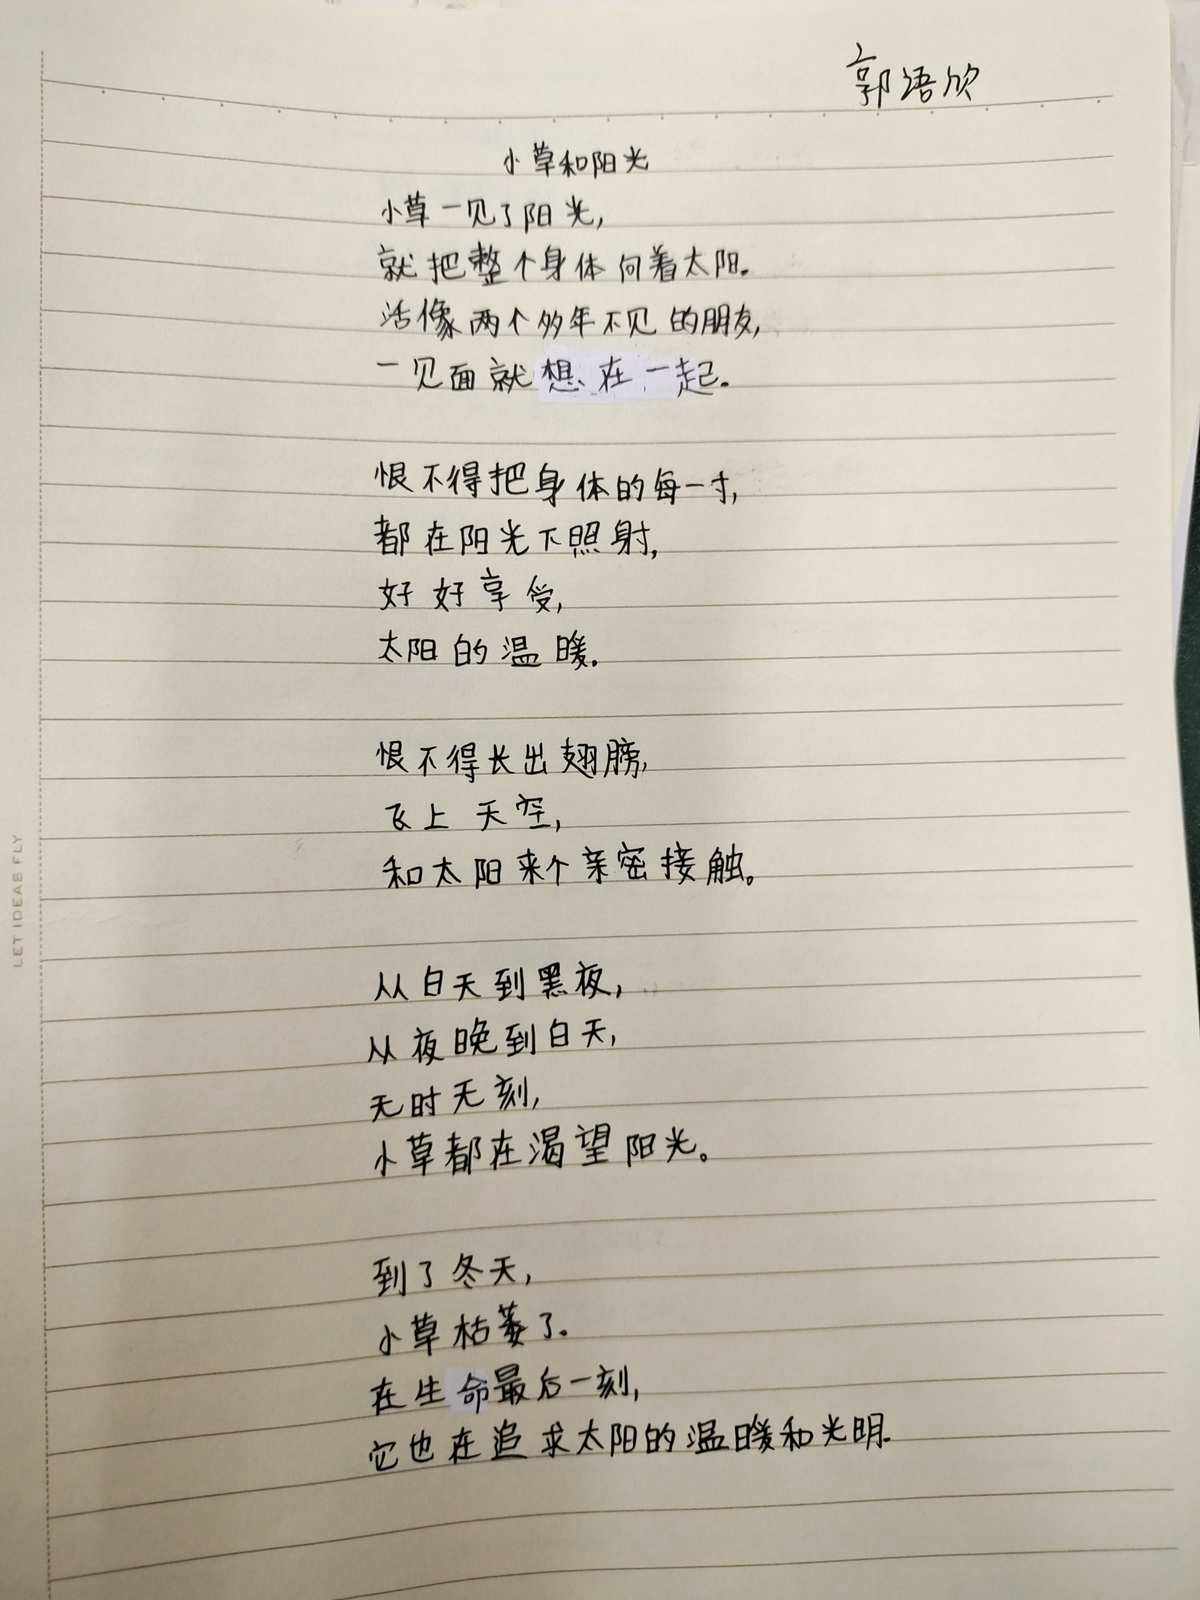 郭语欣
小草和阳光
小草一见了阳光,
就把整个身体向着太阳.
活像两个多年不见的朋友,
一见面就想在一起.
恨不得把身体的每一寸,
都在阳光下照射,
好好享受,
太阳的温暖.
恨不得长出翅膀,
飞上天空,
和太阳来个亲密接触。
从白天到黑夜,
从夜晚到白天,
无时无刻,
小草都在渴望阳光。
到了冬天,
小草枯萎了.
在生命最后一刻,
它也在追求太阳的温暖和光明.
LET IDEAS FLY